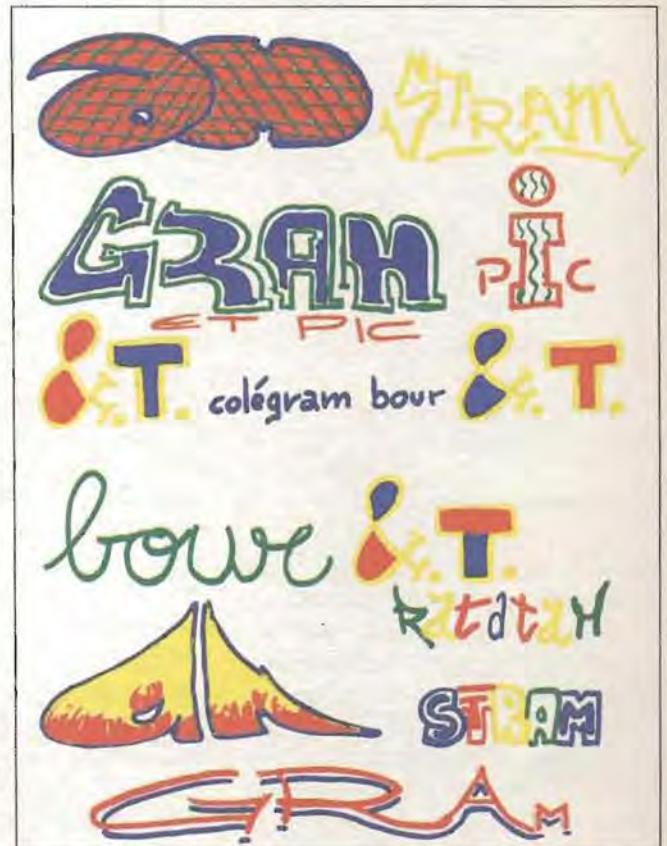 am STRAM
GRAM PiC
ET PIC
&.T. colégram bour &.T.
bour &.T.
RatataM
am STRAM
GRAM